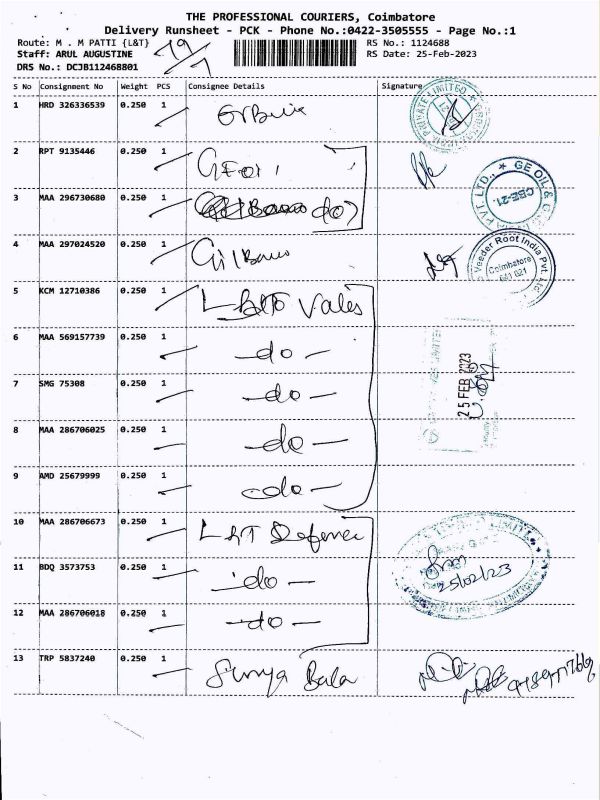 THE PROFESSIONAL COURIERS, Coimbatore
Delivery Runsheet - PCK - Phone No.:0422-3505555 - Page No.:1
Route: M . M PATTI {L&T}
RS No.: 1124688
Staff: ARUL AUGUSTINE
RS Date: 25-Feb-2023
DRS No.: DCJB112468801
S No Consignment No Weight PCS Consignee Details Signature
1 HRD 326336539 0.250 1
2 RPT 9135446 0.250 1
3 MAA 296730680 0.250 1 do
4 MAA 297024520 0.250 1
5 KCM 12710386 0.250 1 Vales
6 MAA 569157739 0.250 1 - do -
7 SMG 75308 0.250 1 - do -
8 MAA 286706025 0.250 1 - do -
9 AMD 25679999 0.250 1 - do -
10 MAA 286706673 0.250 1 L&T Defence
11 BDQ 3573753 0.250 1 - do -
12 MAA 286706018 0.250 1 - do -
13 TRP 5837240 0.250 1 Surya Bala
PRIVATE LIMITED
PVT LTD., ★ GE OIL &
CBE-21
Veeder Root India Pvt. Ltd
Coimbatore
641 021
25 FEB 2023
25/02/23